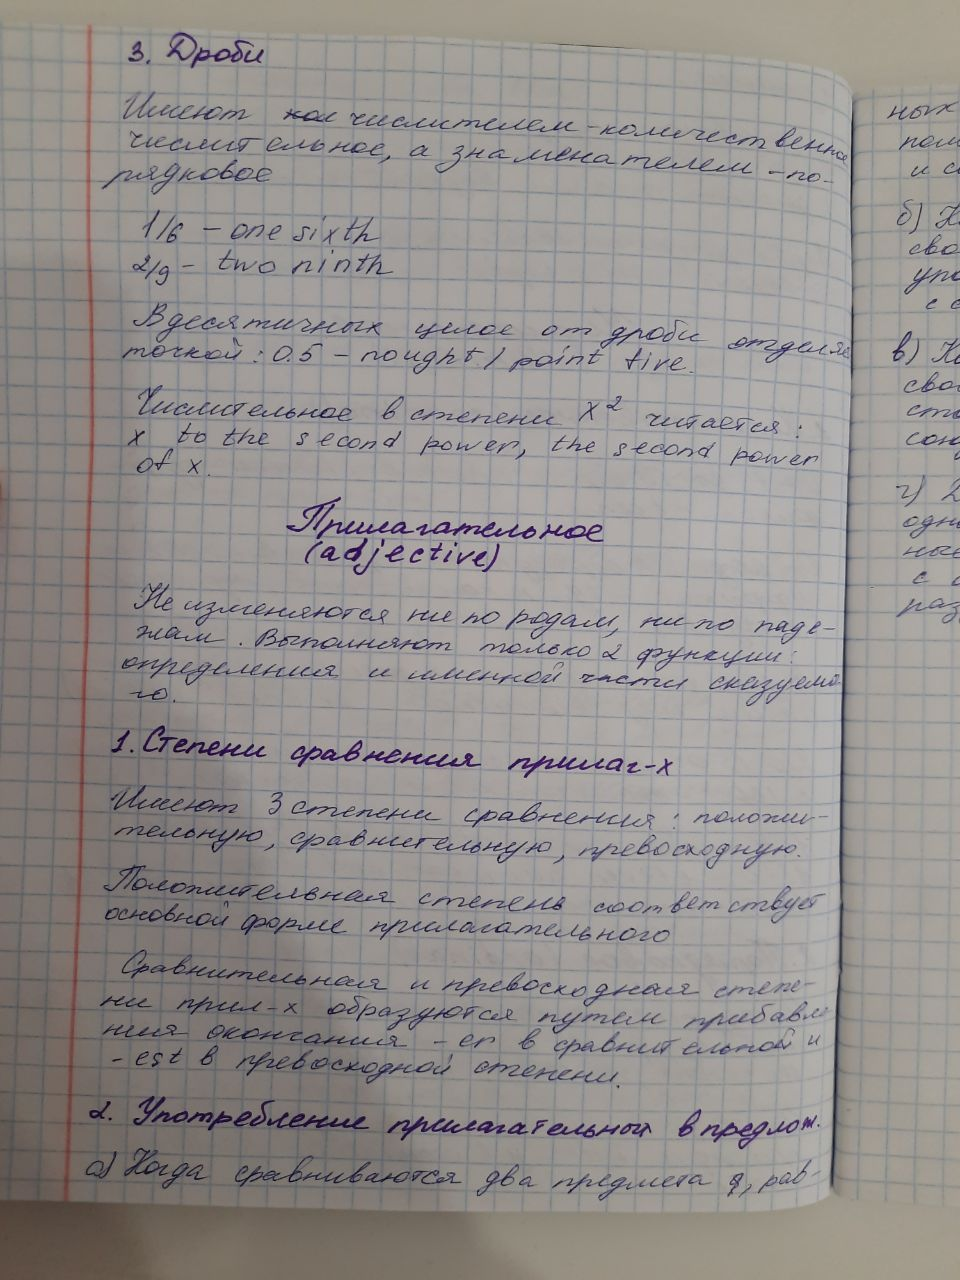 3. Дроби
Имеют числителем - количественное
числительное, а знаменателем - по-
рядковое
1/6 - one sixth
2/9 - two ninth
В десятичных целое от дроби отделяе
точкой: 0.5 - nought / point five.
Числительное в степени X² читается:
x to the second power, the second power
of x.
Прилагательное
(adjective)
Не изменяются ни по родам, ни по паде-
жам. Выполняют только 2 функции:
определения и именной части сказуемо
го.
1. Степени сравнения прилаг-х
Имеют 3 степени сравнения: положи-
тельную, сравнительную, превосходную.
Положительная степень соответствует
основной форме прилагательного
Сравнительная и превосходная степе-
ни прил-х образуются путем прибавле
ния окончания -er в сравнительной и
-est в превосходной степени.
2. Употребление прилагательных в предлож.
а) Когда сравниваются два предмета , рав-
ных
и с
б) К
сво
упо
с с
в) Ко
свои
сте
сою
г) Д
одно
ные
с
раз